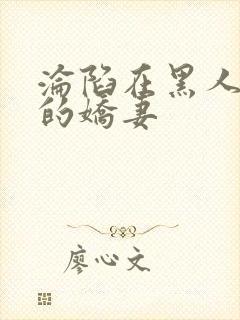 淪陷在黑人
的嬌妻
廖心文